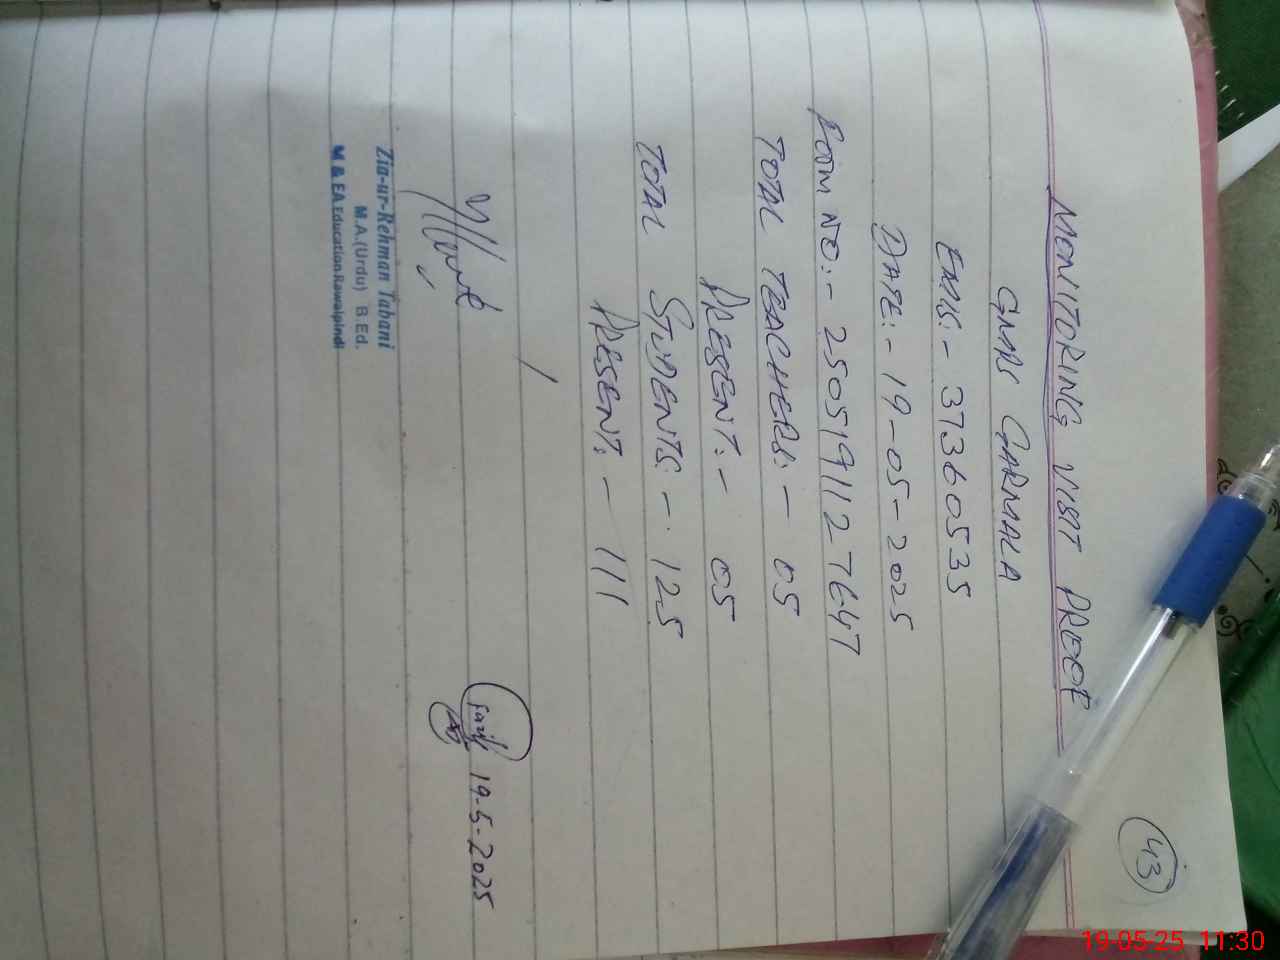 43
MONITORING VISIT PROOF
GMPS GARMALA
EMIS:- 37360535
DATE:- 19-05-2025
FORM NO:- 2505191127647
TOTAL TEACHERS:- 05
PRESENT:- 05
TOTAL STUDENTS:- 125
PRESENT:- 111
19-5-2025
Zia-ur-Rehman Tabani
M.A.(Urdu) B.Ed.
M & EA Education Rawalpindi
19-05-25 11:30